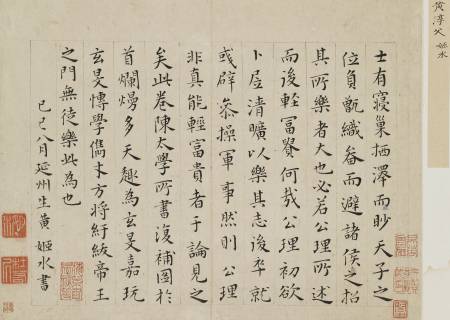 黄淳父 姬水
士有寢巢栖澤而眇天子之
位負甑織畚而避諸侯之招
其所樂者大也必若公理所述
而後輕冨貴何哉公理初欲
卜居清曠以樂其志後卒就
彧辟叅操軍事然則公理
非真能輕富貴者于論見之
矣此卷陳太學所書復補圖於
首爛熳多天趣為玄旻嘉玩
玄旻博學儁才方將紆紱帝王
之門無徒樂此為也
己巳八月延州生黃姬水書